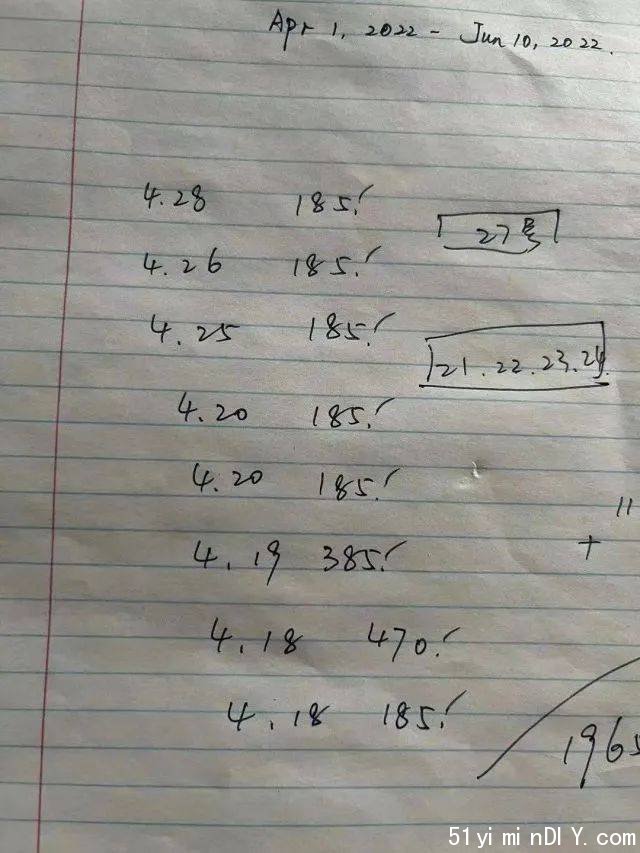 Apr 1, 2022 - Jun 10, 2022.
4.28 185.✓
27号
4.26 185.✓
4.25 185.✓
21.22.23.24.
4.20 185.✓
4.20 185.✓
"
+
4.19 385.✓
4.18 470.✓
4.18 185.✓
1965
51yiminDIY.com